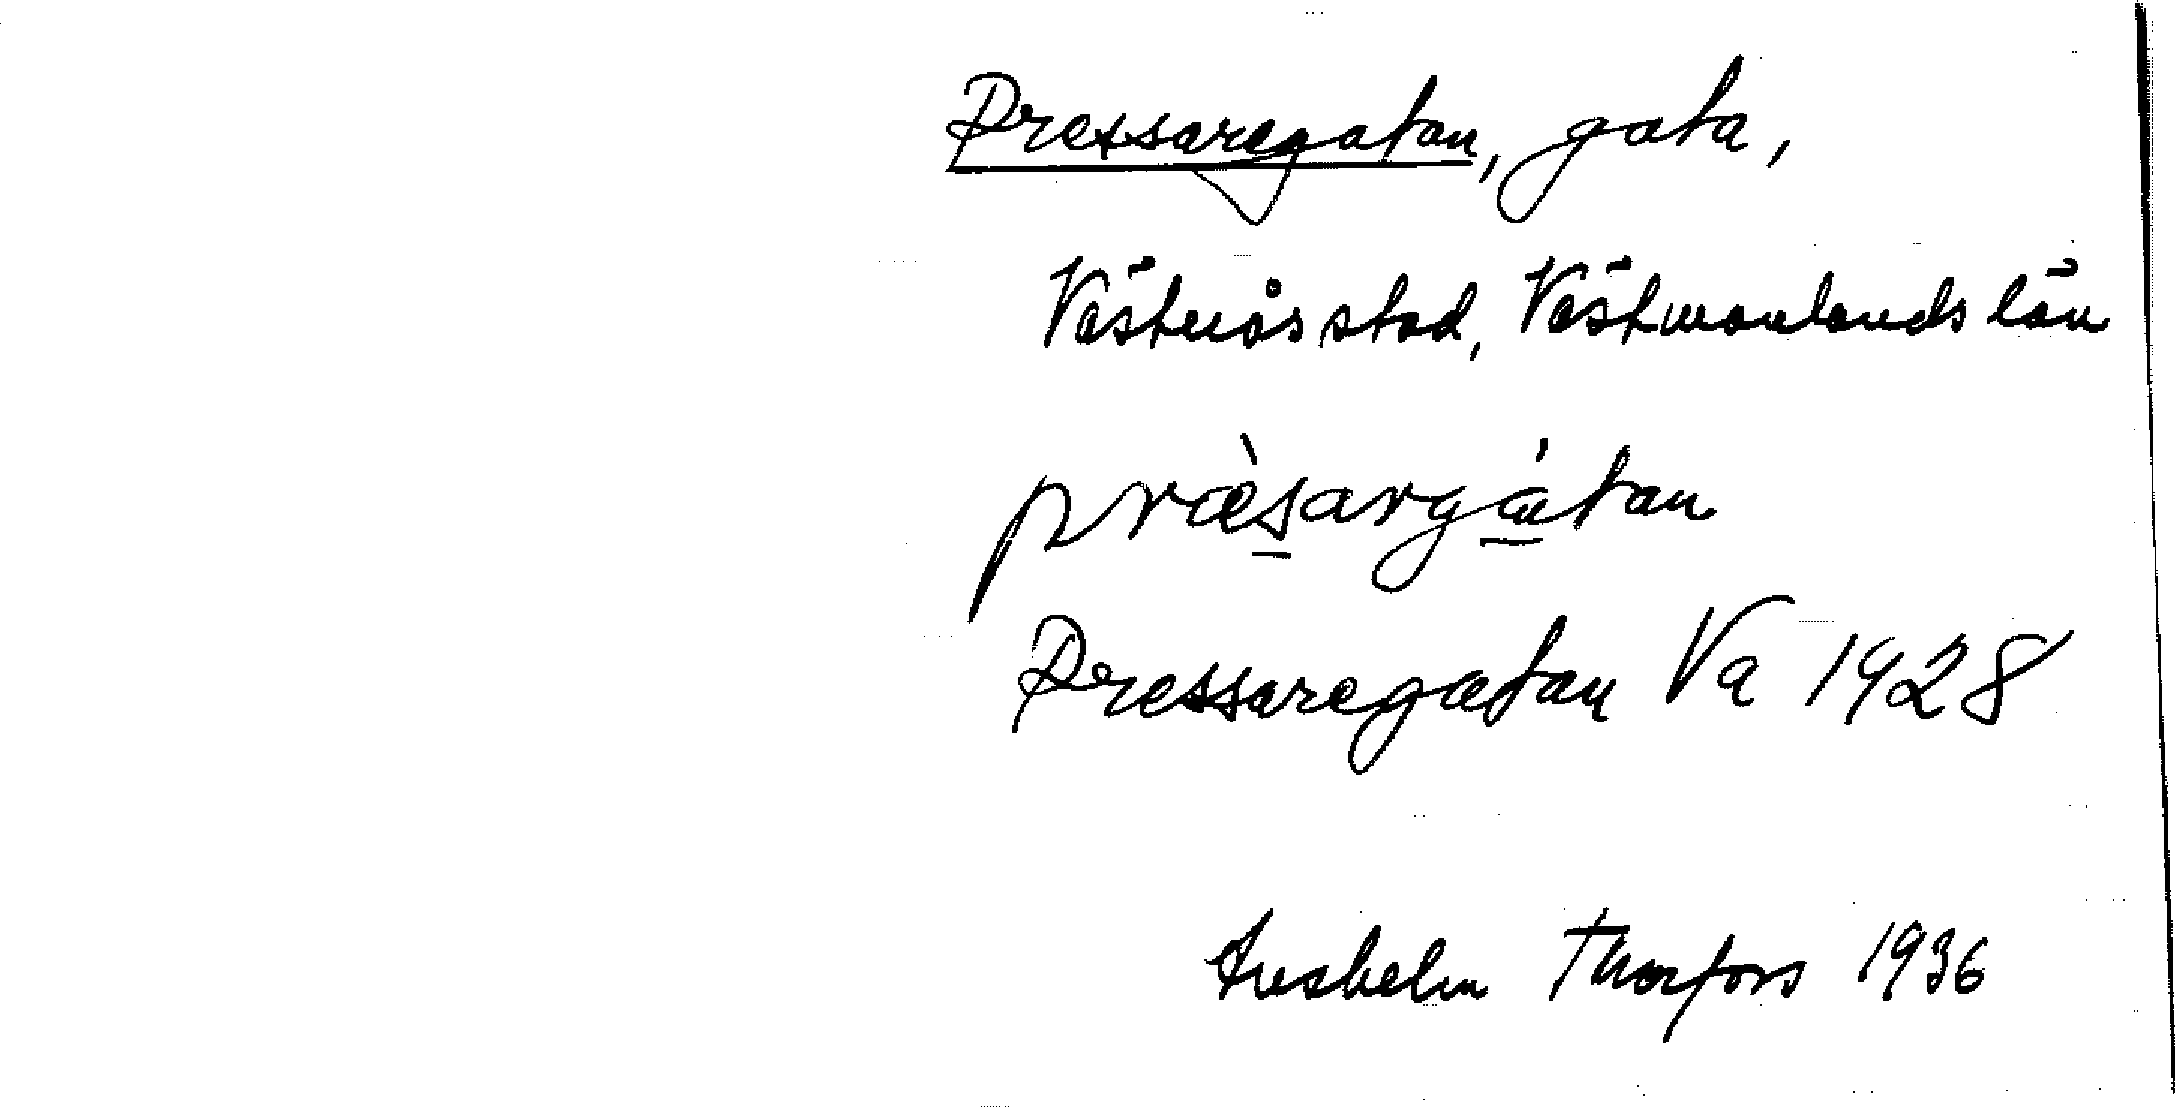 Pressaregatan, gata,
Västerås stad, Västmanlands län
præ̀sargátan
Pressaregatan Va 1928
Thorfors 1936